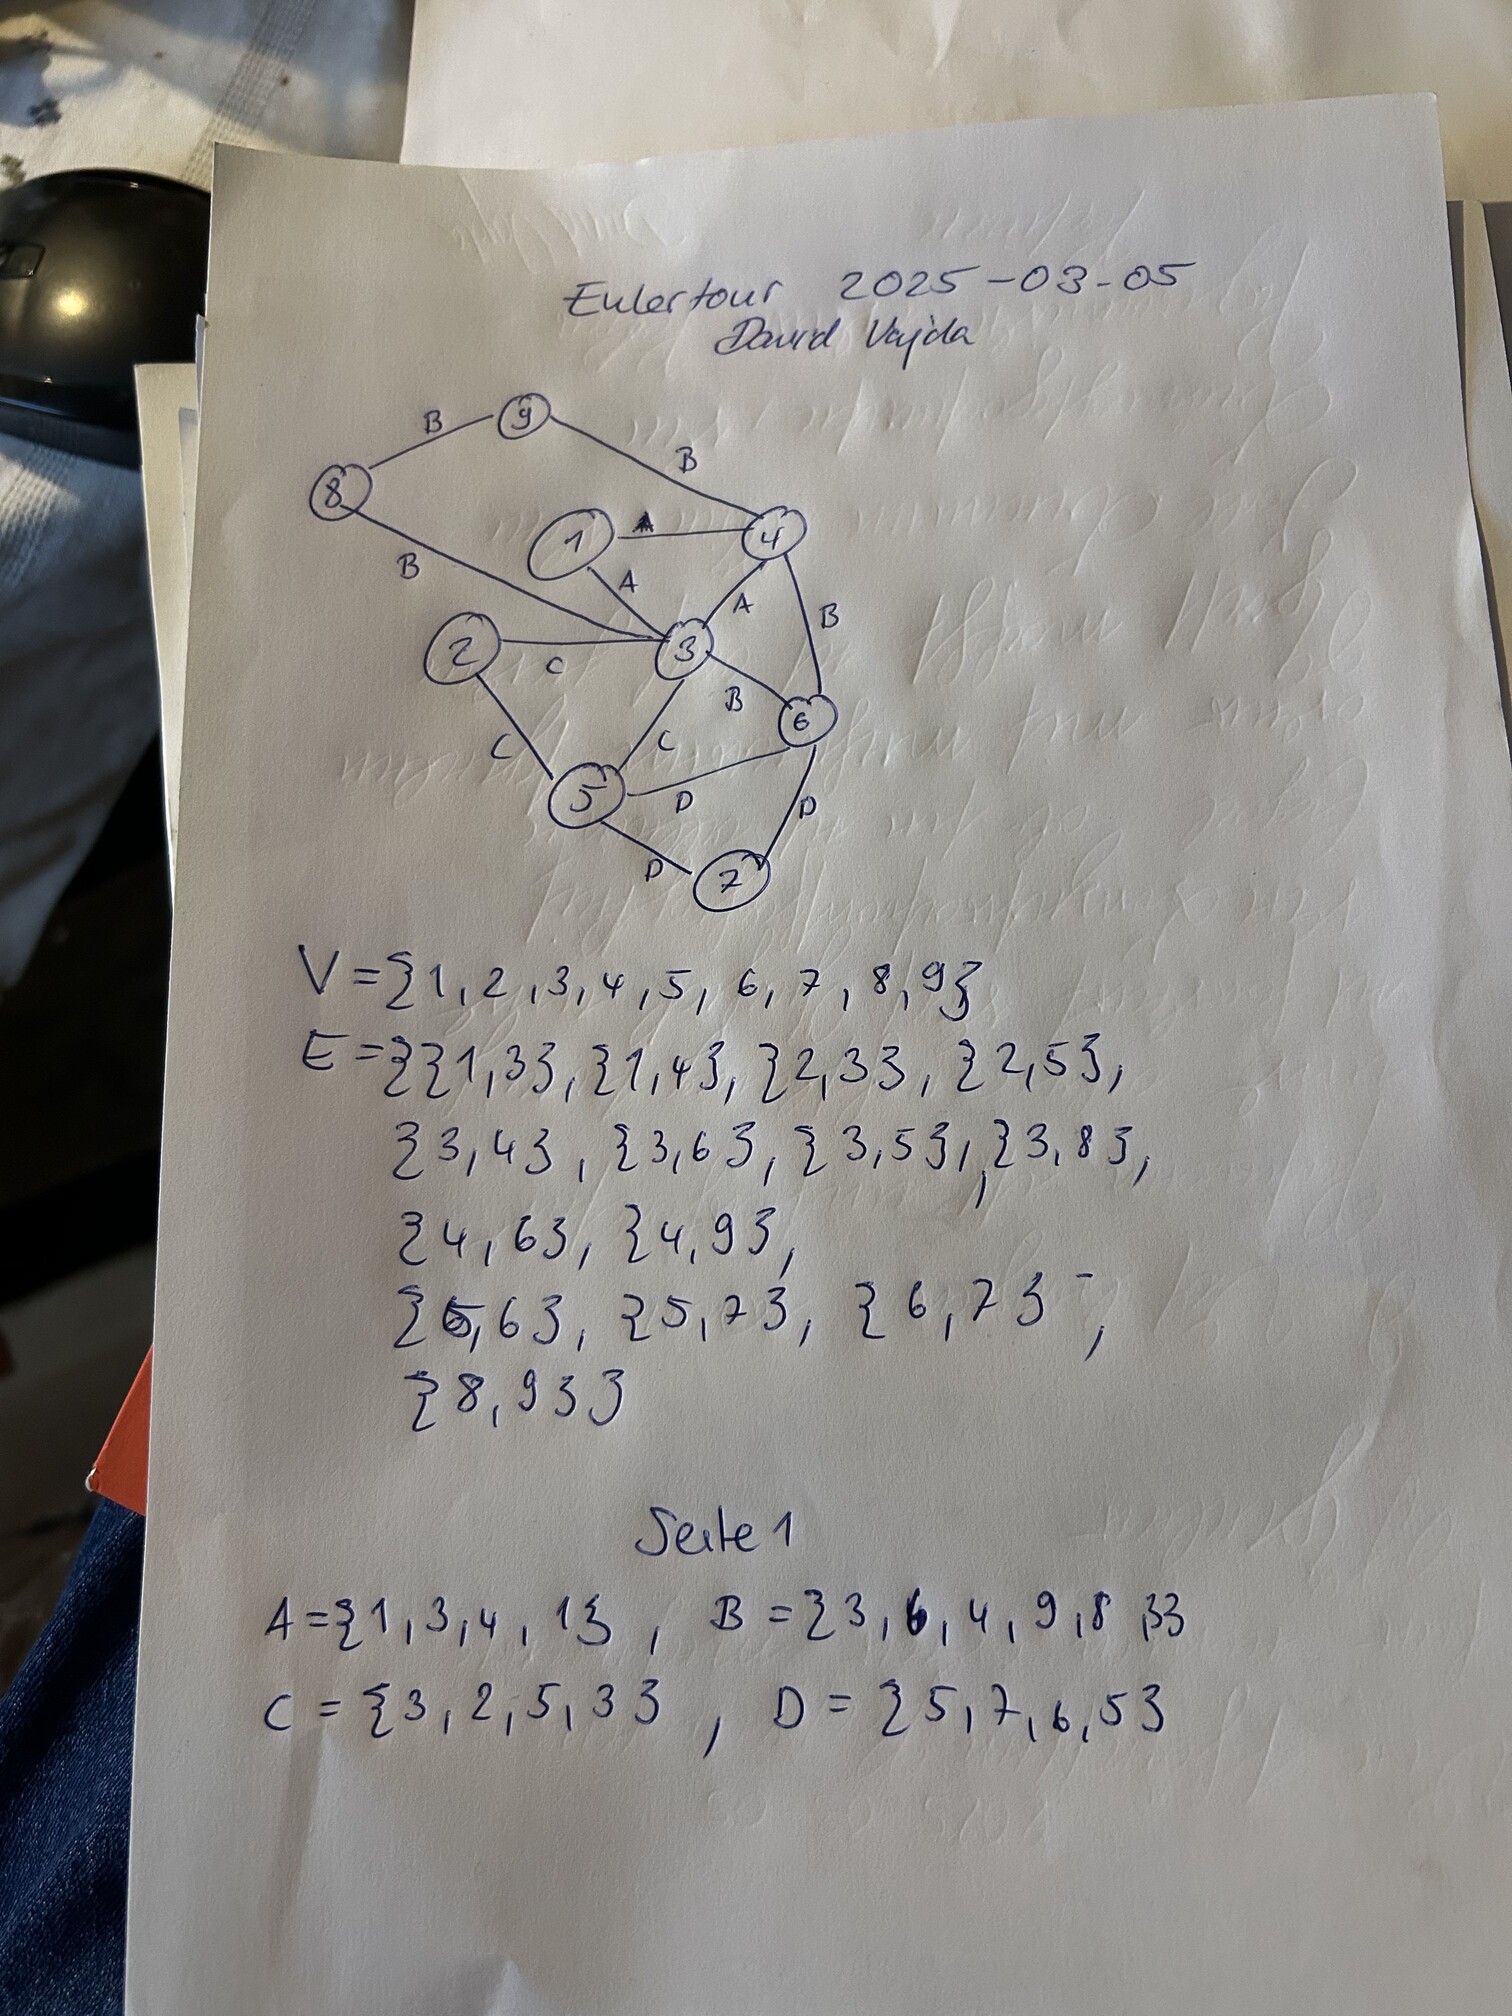 Eulertour 2025-03-05
David Vajda
B
9
B
8
1
A
4
B
A
A
B
2
C
3
B
6
C
C
5
D
D
D
7
V={1,2,3,4,5,6,7,8,9}
E={{1,3},{1,4},{2,3},{2,5},
{3,4},{3,6},{3,5},{3,8},
{4,6},{4,9},
{5,6},{5,7},{6,7},
{8,9}}
Seite 1
A={1,3,4,1}, B={3,6,4,9,8,3}
C={3,2,5,3}, D={5,7,6,5}